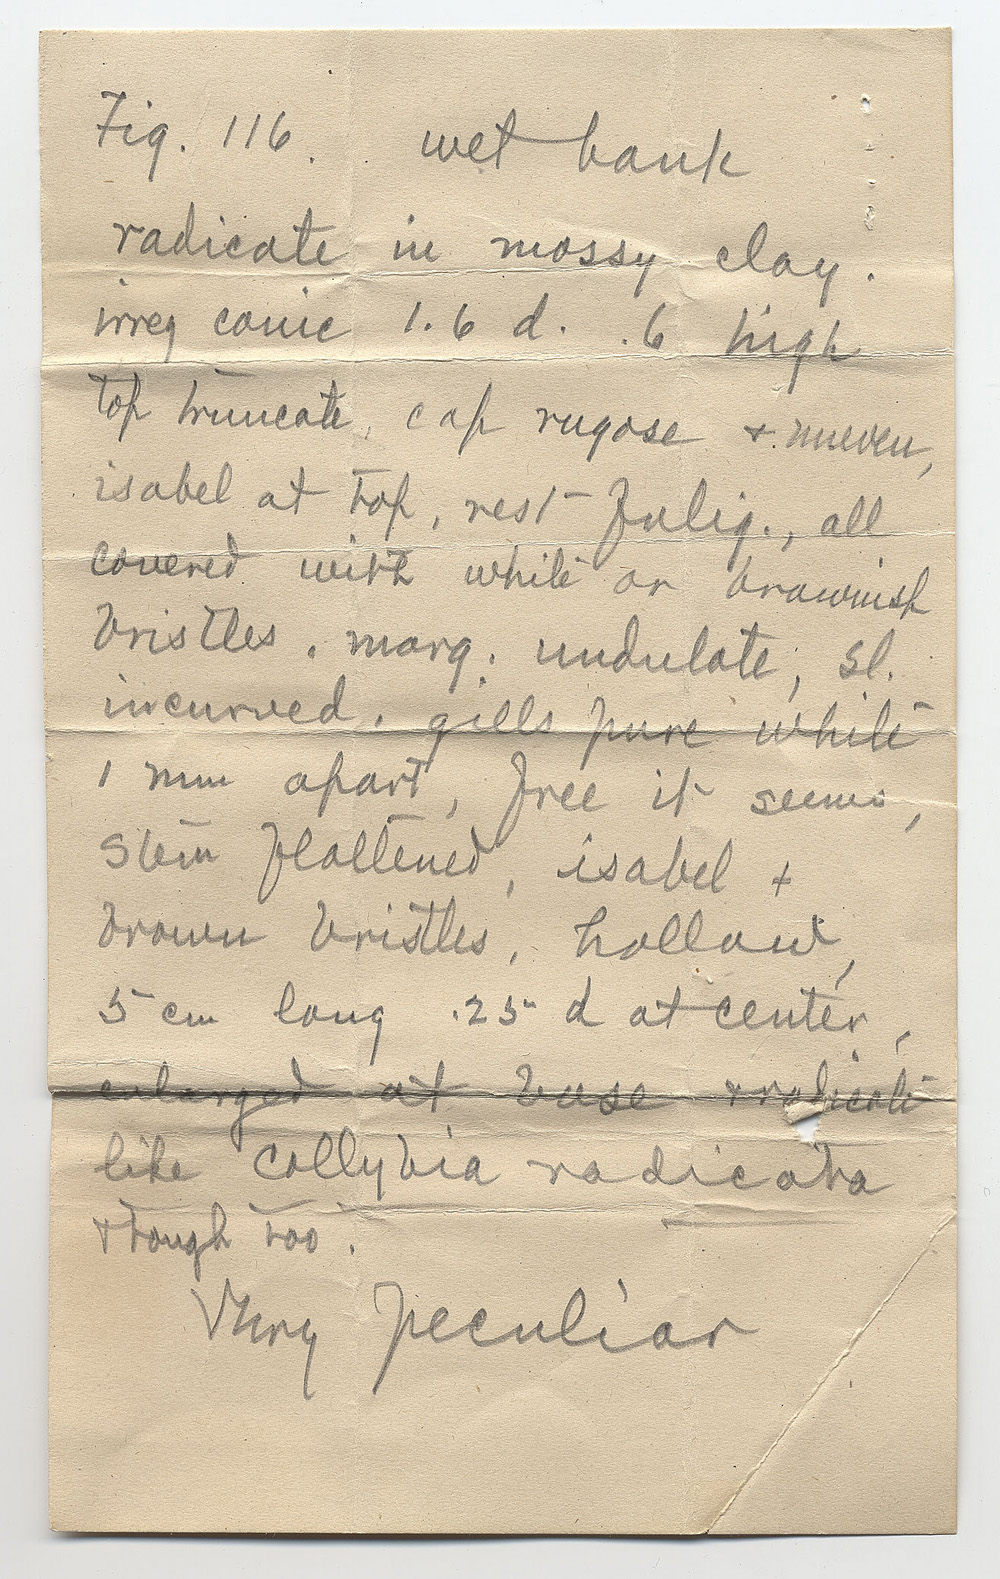 Fig. 116. wet bank
radicate in mossy clay.
irreg conic 1.6 d. .6 high
top truncate, cap rugose + uneven,
isabel at top, rest fulig., all
covered with white or brownish
bristles. marg. undulate, sl.
incurved. gills pure white
1 mm apart, free it seems,
stem flattened, isabel +
brown bristles, hollow,
5 cm long .25 d at center,
enlarged at base + radicate
like collybia radicata
+ tough too.
Very peculiar